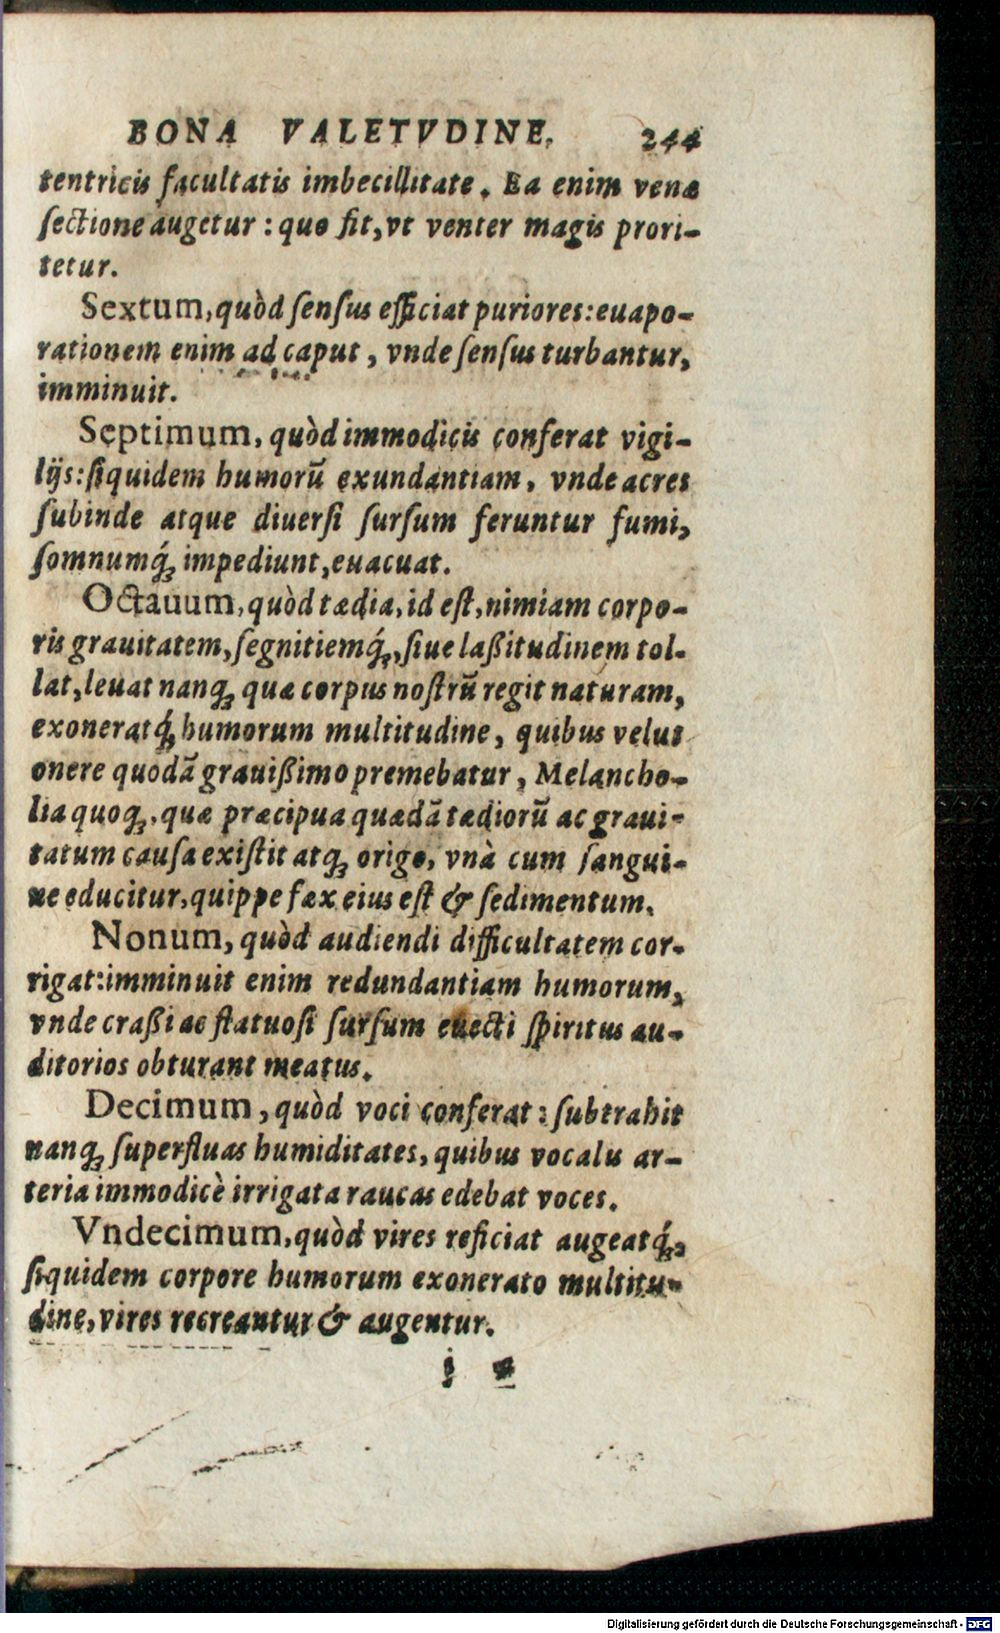 BONA VALETVDINE. 244
tentricis facultatis imbecillitate. Ea enim venæ
ſectione augetur: quo fit, vt venter magis prori-
tetur.
Sextum, quòd ſenſus efficiat puriores: euapo-
rationem enim ad caput, vnde ſenſus turbantur,
imminuit.
Septimum, quòd immodicis conferat vigi-
lijs: ſiquidem humorũ exundantiam, vnde acres
ſubinde atque diuerſi ſurſum feruntur fumi,
ſomnumq́; impediunt, euacuat.
Octauum, quòd tædia, id eſt, nimiam corpo-
ris grauitatem, ſegnitiemq́;, ſiue laßitudinem tol-
lat, leuat nanq; quæ corpus noſtrũ regit naturam,
exoneratq́; humorum multitudine, quibus velut
onere quodã grauißimo premebatur, Melancho-
lia quoq;, quæ præcipua quædã tædiorũ ac graui-
tatum cauſa exiſtit atq; origo, vnà cum ſangui-
ne educitur, quippe fæx eius eſt & ſedimentum.
Nonum, quòd audiendi difficultatem cor-
rigat: imminuit enim redundantiam humorum,
vnde craßi ac flatuoſi ſurſum euecti ſpiritus au-
ditorios obturant meatus.
Decimum, quòd voci conferat: ſubtrahit
nanq; ſuperfluas humiditates, quibus vocalis ar-
teria immodicè irrigata raucas edebat voces.
Vndecimum, quòd vires reficiat augeatq́;,
ſiquidem corpore humorum exonerato multitu-
dine, vires recreantur & augentur.
Digitalisierung gefördert durch die Deutsche Forschungsgemeinschaft - DFG